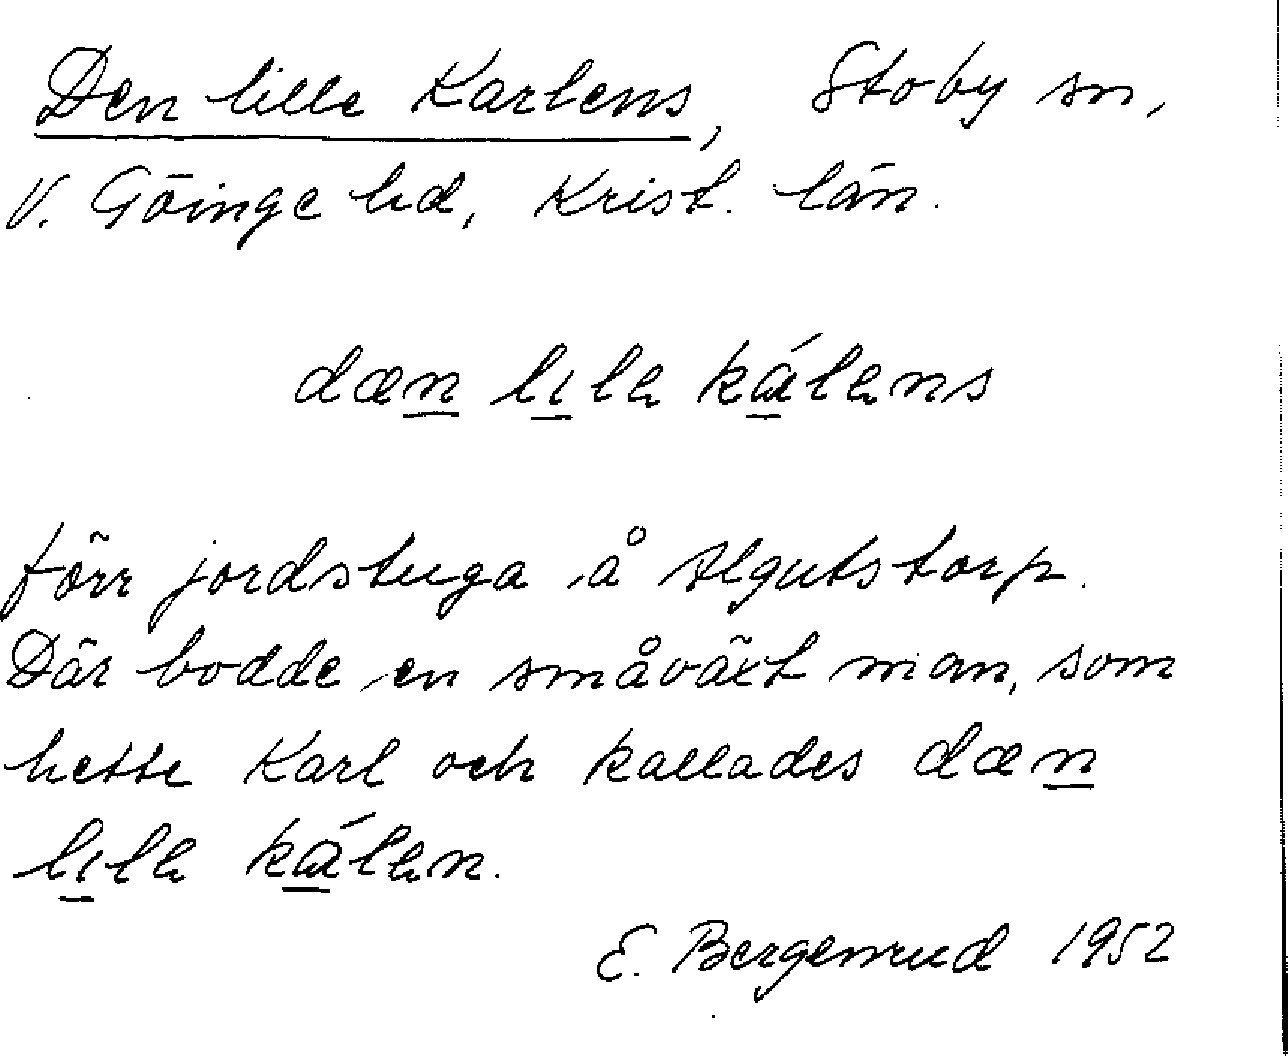 Den lille Karlens, Stoby sn,
V. Göinge hd, Krist. län.
dæn lilə káləns
förr jordstuga å Algutstorp.
Där bodde en småväxt man, som
hette Karl och kallades dæn
lilə kálən.
E. Bergenrud 1952